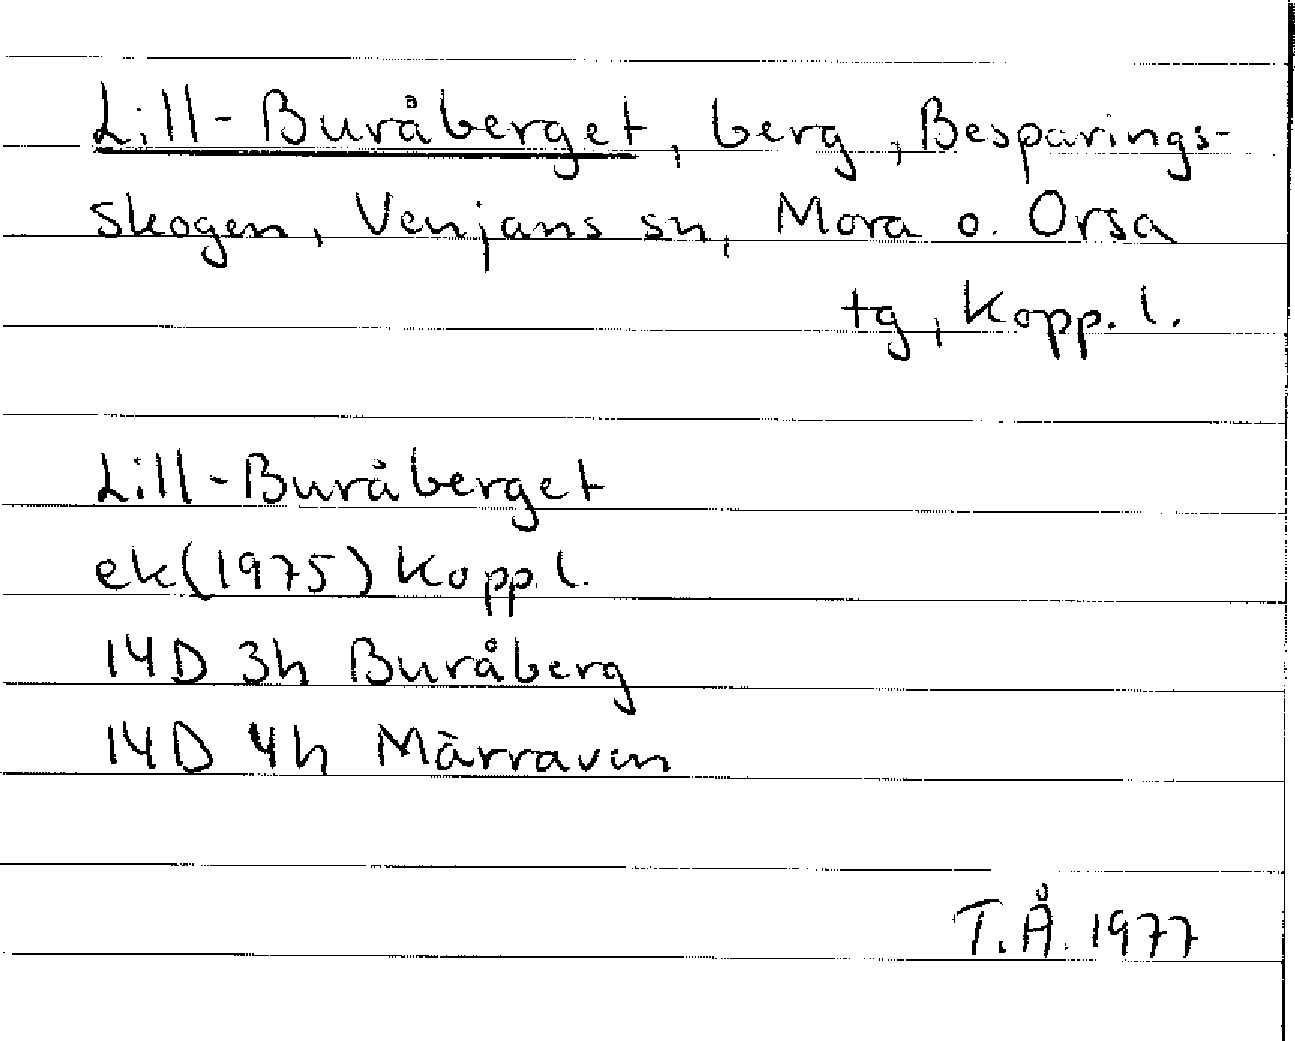 Lill-Buråberget, berg, Besparings-
skogen, Venjans sn, Mora o. Orsa
tg, Kopp. l.
Lill-Buråberget
ek(1975) Kopp. l.
14D 3h Buråberg
14D 4h Märravin
T.Å. 1977